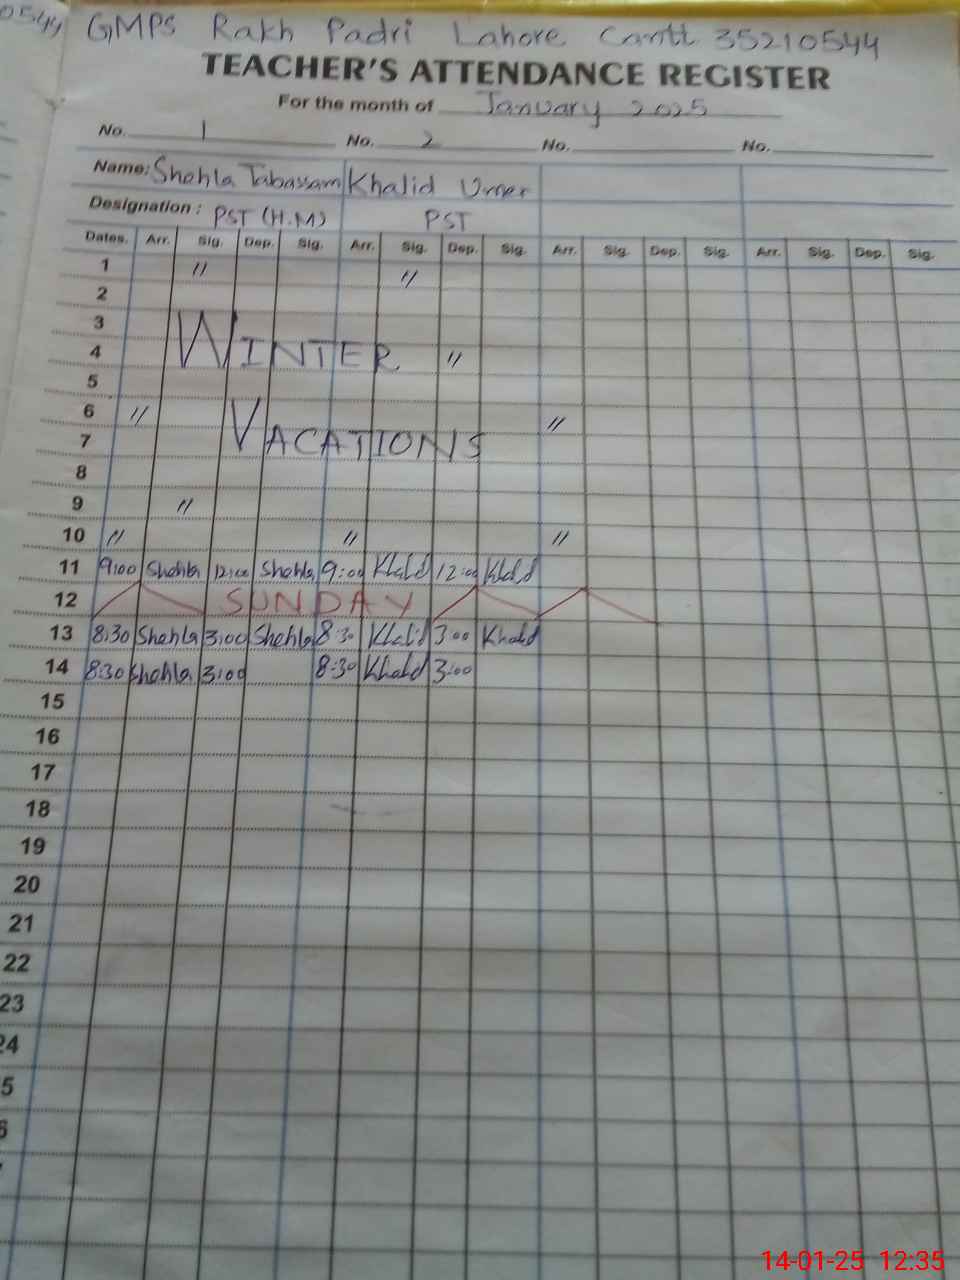 0544 GMPS Rakh Padri Lahore Cantt 35210544
TEACHER'S ATTENDANCE REGISTER
For the month of January 2025
No. 1 No. 2 No. No.
Name: Shehla Tabassam Khalid Umer
Designation: PST (H.M) PST
Dates. Arr. Sig. Dep. Sig. Arr. Sig. Dep. Sig. Arr. Sig. Dep. Sig. Arr. Sig. Dep. Sig.
1 " "
2
3
4 WINTER "
5
6 " "
7 VACATIONS
8
9 "
10 " " "
11 9:00 Shehla 12:00 Shehla 9:00 Khalid 12:00 Khalid
12 SUNDAY
13 8:30 Shehla 3:00 Shehla 8:30 Khalid 3:00 Khalid
14 8:30 Shehla 3:00 8:30 Khalid 3:00
15
16
17
18
19
20
21
22
23
24
5
6
14-01-25 12:35